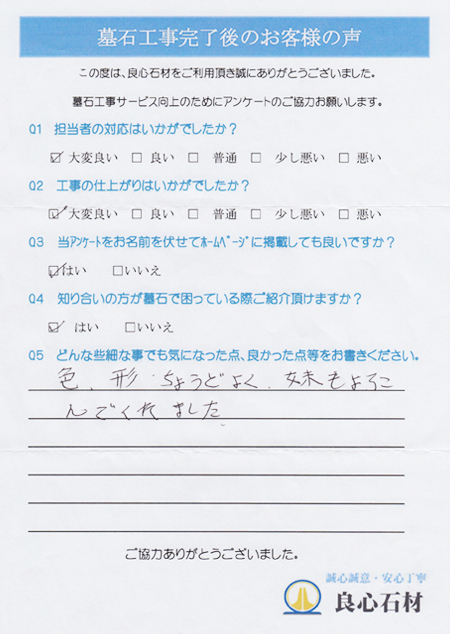 墓石工事完了後のお客様の声
この度は、良心石材をご利用頂き誠にありがとうございました。
墓石工事サービス向上のためにアンケートのご協力お願いします。
Q1 担当者の対応はいかがでしたか？
☑ 大変良い □ 良い □ 普通 □ 少し悪い □ 悪い
Q2 工事の仕上がりはいかがでしたか？
☑ 大変良い □ 良い □ 普通 □ 少し悪い □ 悪い
Q3 当ｱﾝｹｰﾄをお名前を伏せてﾎｰﾑﾍﾟｰｼﾞに掲載しても良いですか？
☑はい □いいえ
Q4 知り合いの方が墓石で困っている際ご紹介頂けますか？
☑ はい □いいえ
Q5 どんな些細な事でも気になった点、良かった点等をお書きください。
色、形 ちょうどよく、妹もよろこ
んでくれました
ご協力ありがとうございました。
誠心誠意・安心丁寧
良心石材